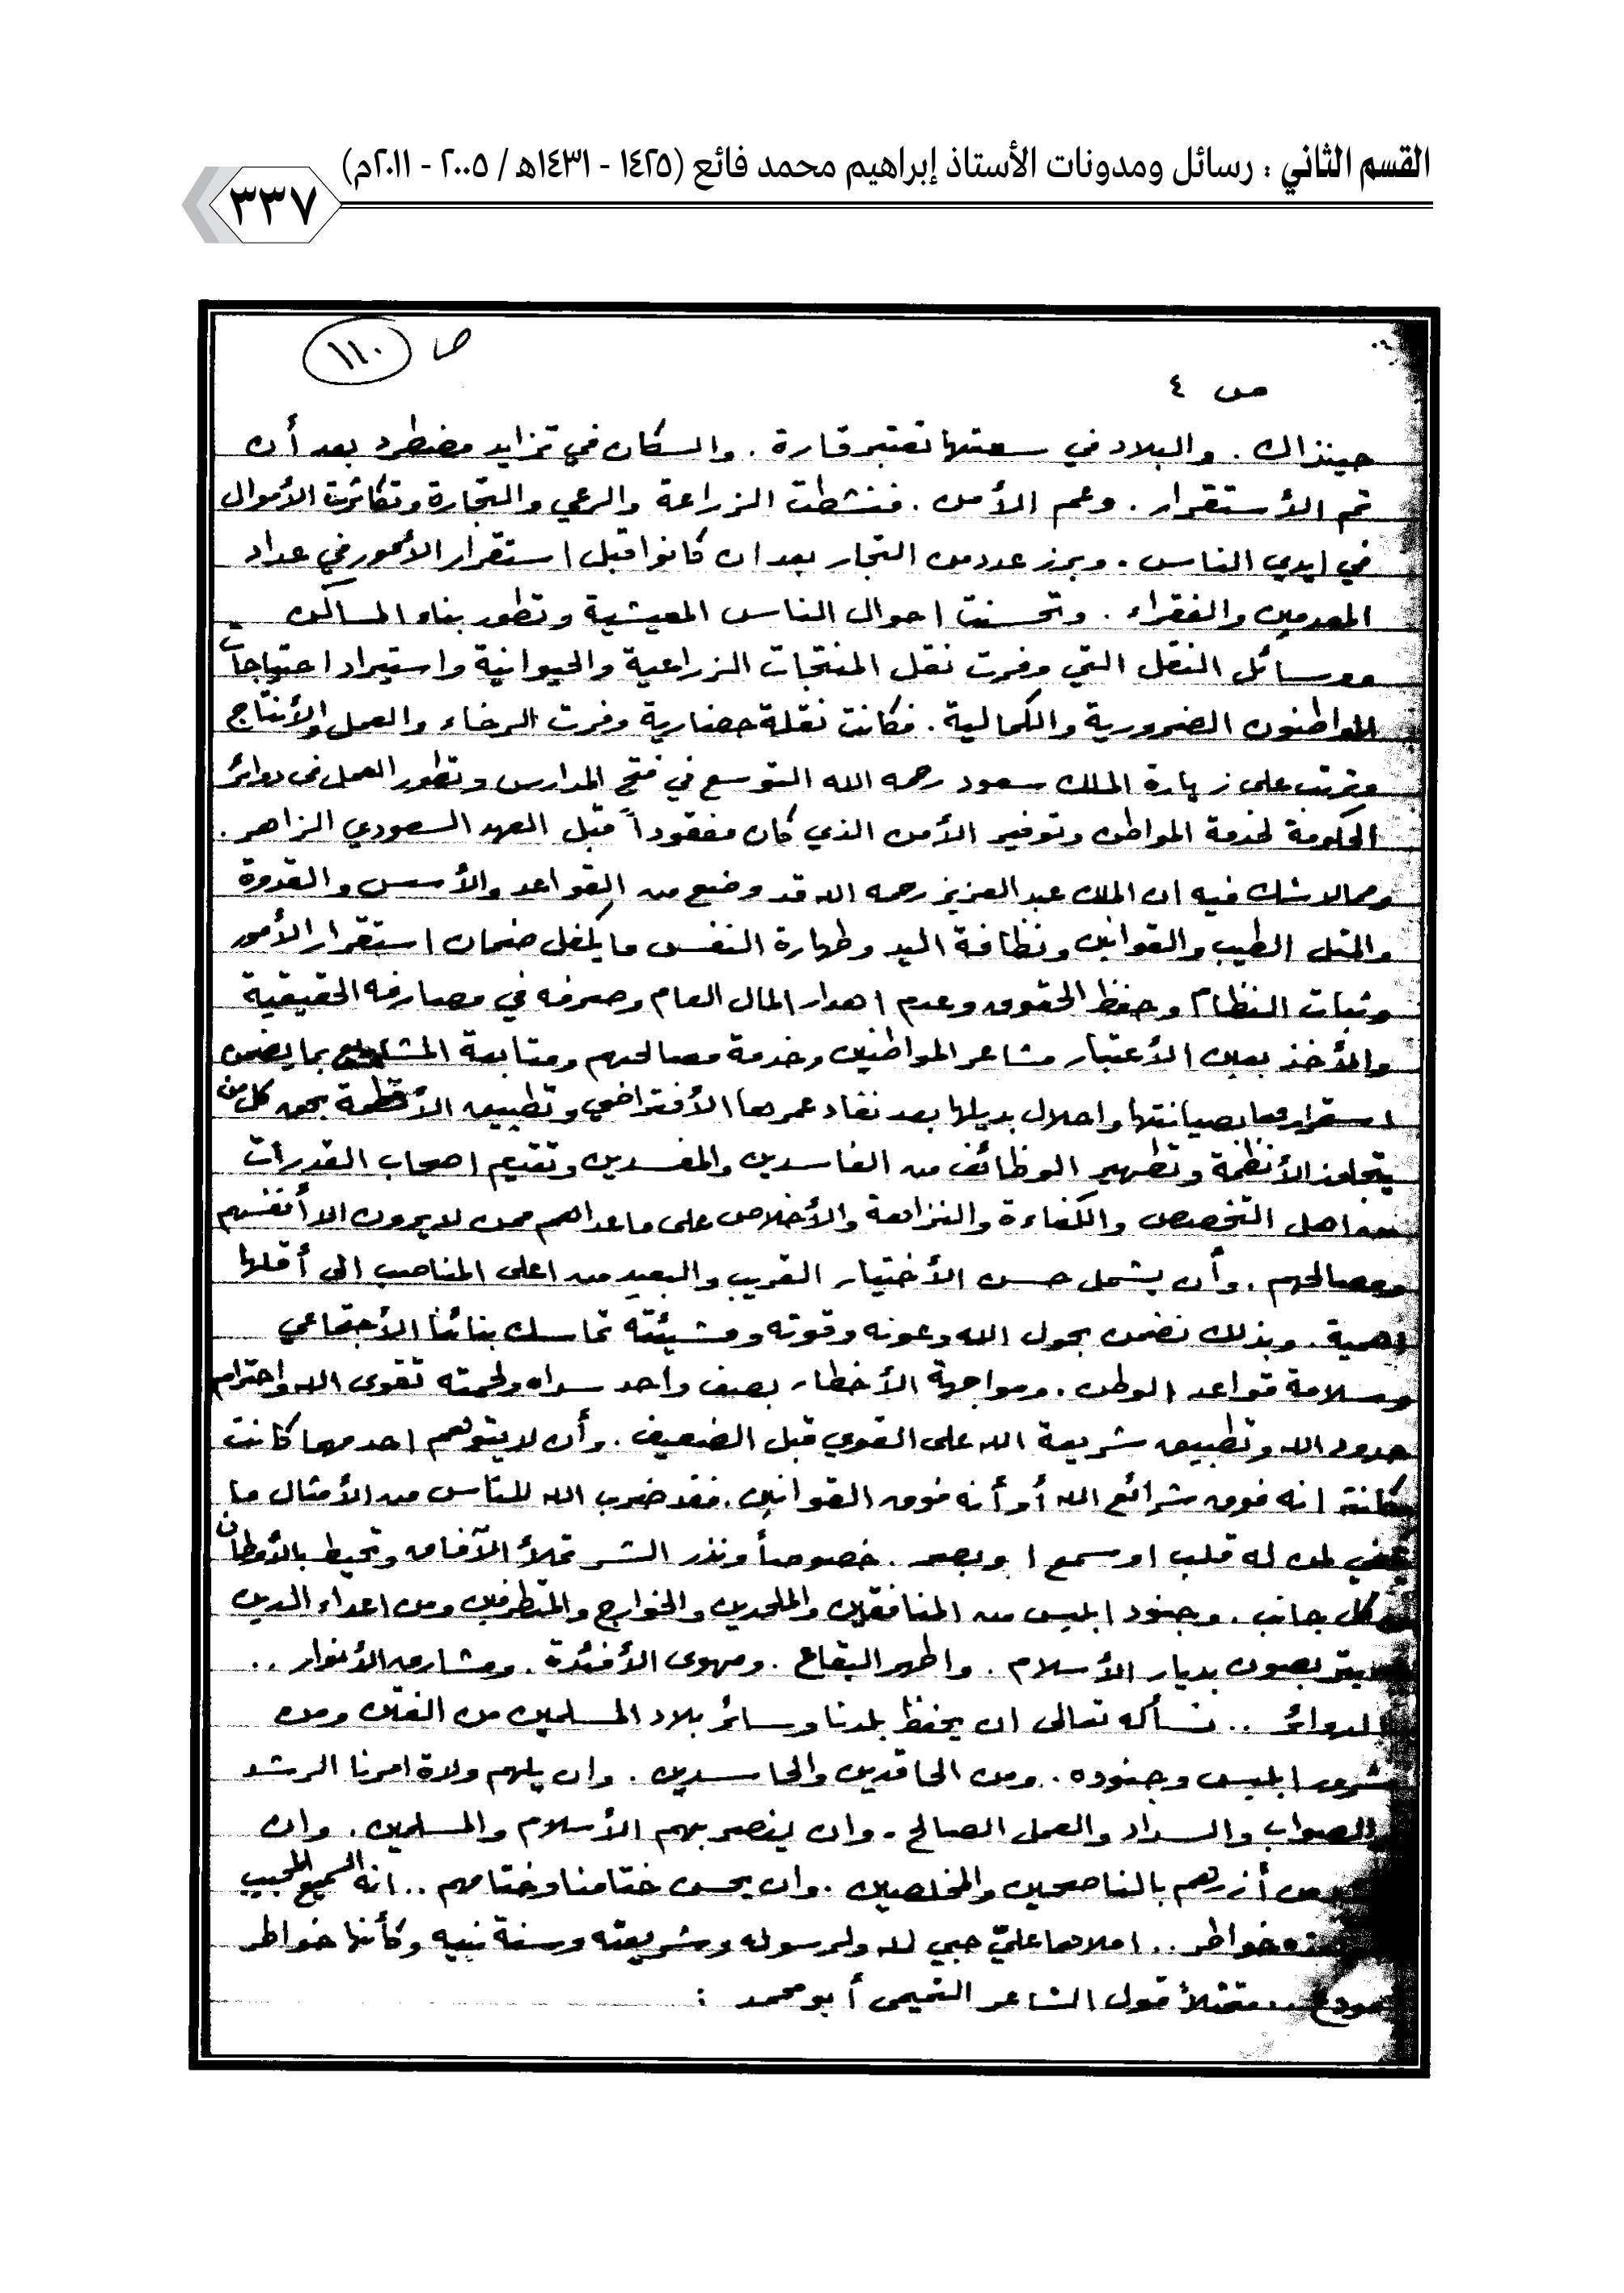 القسم الثاني : رسائل ومدونات الأستاذ إبراهيم محمد فائع (١٤٢٥ - ١٤٣١هـ / ٢٠٠٥ - ٢٠١١م)
٣٣٧
ص ١١٠
ص ٤
حينذاك . والبلاد في سعتها تعتبر قارة . والسكان في تزايد مضطرد بعد أن
تم الأستقرار . وعم الأمن . فنشطت الزراعة والرعي والتجارة وتكاثرت الأموال
في ايدي الناس . وبرز عدد من التجار بعد ان كانوا قبل استقرار الأمور في عداد
المعدمين والفقراء . وتحسنت احوال الناس المعيشية وتطور بناء المساكن
ووسائل النقل التي وفرت نقل المنتجات الزراعية والحيوانية واستيراد احتياجات
المواطنون الضرورية والكمالية . فكانت نقلة حضارية وفرت الرخاء والعمل والأنتاج
وترتب على زيارة الملك سعود رحمه الله التوسع في فتح المدارس وتطور العمل في دوائر
الحكومة لخدمة المواطن وتوفير الأمن الذي كان مفقوداً قبل العهد السعودي الزاهر .
ومما لاشك فيه ان الملك عبدالعزيز رحمه الله قد وضع من القواعد والأسس والقدوة
والمثل الطيب والقوانين ونظافة اليد وطهارة النفس ما يكفل ضمان استقرار الأمور
وثبات النظام وحفظ الحقوق وعدم اهدار المال العام وصرفه في مصارفه الحقيقية
والأخذ بعين الأعتبار مشاعر المواطنين وخدمة مصالحهم ومتابعة المشاريع بما يضمن
استقرارها بصيانتها واحلال بديلها بعد نفاد عمرها الأفتراضي وتطبيق الأنظمة بحق كل من
يتجاوز الأنظمة وتطهير الوظائف من الفاسدين والمفسدين وتقديم اصحاب القدرات
من اهل التخصص والكفاءة والنزاهة والأخلاص على ما عداهم ممن لا يرون الا أنفسهم
ومصالحهم . وأن يشمل حسن الأختيار القريب والبعيد من اعلى المناصب الى أقلها
اهمية . وبذلك نضمن بحول الله وعونه وقوته ومشيئته تماسك بنائنا الأجتماعي
وسلامة قواعد الوطن . ومواجهة الأخطار بصف واحد سداه ولحمته تقوى الله واحترام
حدود الله وتطبيق شريعة الله على القوي قبل الضعيف . وأن لا يتوهم احد مهما كانت
مكانته انه فوق شرائع الله أو أنه فوق القوانين . فقد ضرب الله للناس من الأمثال ما
يكفي لمن له قلب او سمع او بصر . خصوصاً ونذر الشر تملأ الآفاق وتحيط بالأوطان
من كل جانب . وجنود ابليس من المنافقين والملحدين والخوارج والمتطرفين ومن اعداء الدين
يتربصون بديار الأسلام . واطهر البقاع . ومهوى الأفئدة . ومشارق الأنوار ..
الدوائر .. نسأله تعالى ان يحفظ بلدنا وسائر بلاد المسلمين من الفتن ومن
شرور ابليس وجنوده . ومن الحاقدين والحاسدين . وان يلهم ولاة امرنا الرشد
والصواب والسداد والعمل الصالح . وان ينصر بهم الأسلام والمسلمين . وان
أزرهم بالناصحين والمخلصين . وان يحسن ختامنا وختامهم .. انه السميع المجيب
هذه خواطر .. املاها عليّ حبي لله ولرسوله وشريعته وسنة نبيه وكأنها خواطر
مودع .. متمثلاً قول الشاعر التميمي أبو محمد :